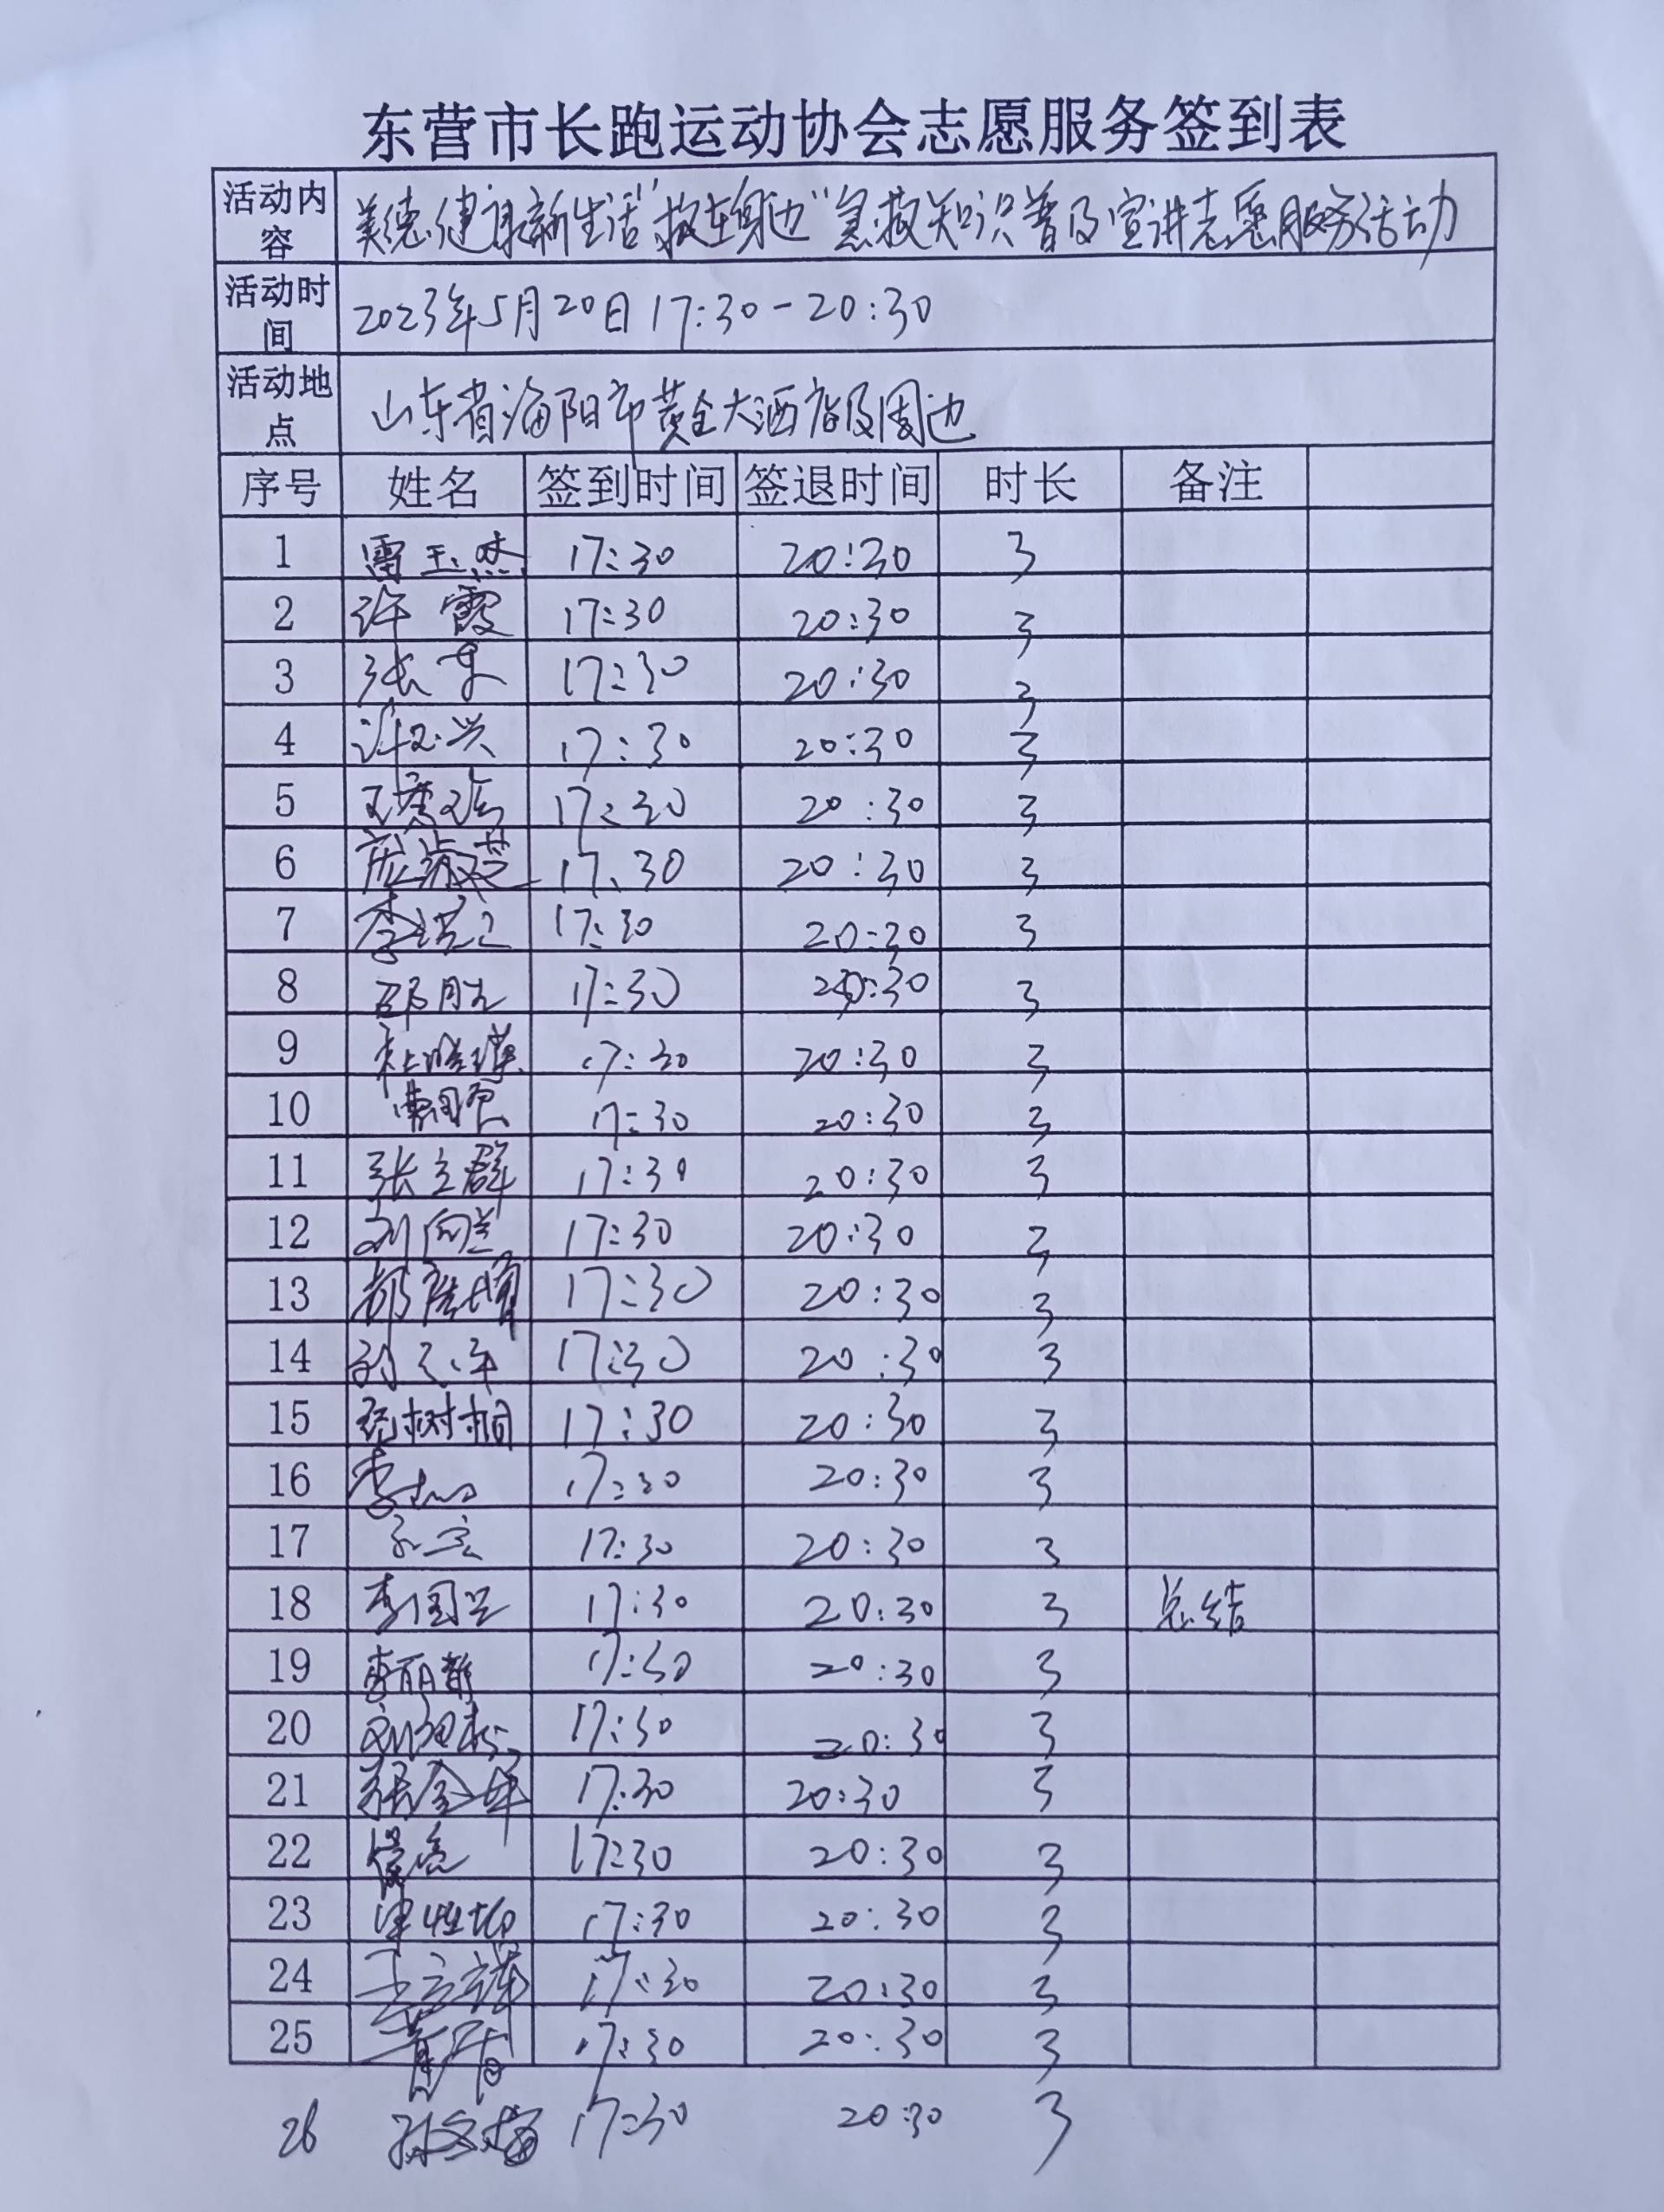 东营市长跑运动协会志愿服务签到表
活动内容 美德健康新生活"救在身边"急救知识普及宣讲志愿服务活动
活动时间 2023年5月20日17:30-20:30
活动地点 山东省海阳市黄金大酒店及周边
序号 姓名 签到时间 签退时间 时长 备注
1 雷玉杰 17:30 20:30 3
2 许霞 17:30 20:30 3
3 张东 17:30 20:30 3
4 17:30 20:30 3
5 17:30 20:30 3
6 17:30 20:30 3
7 17:30 20:30 3
8 17:30 20:30 3
9 杜晓瑾 17:30 20:30 3
10 曹国强 17:30 20:30 3
11 张立群 17:30 20:30 3
12 刘向兰 17:30 20:30 3
13 17:30 20:30 3
14 17:30 20:30 3
15 17:30 20:30 3
16 17:30 20:30 3
17 17:30 20:30 3
18 李国兴 17:30 20:30 3 总结
19 李丽静 17:30 20:30 3
20 17:30 20:30 3
21 17:30 20:30 3
22 17:30 20:30 3
23 17:30 20:30 3
24 17:30 20:30 3
25 17:30 20:30 3
26 17:30 20:30 3